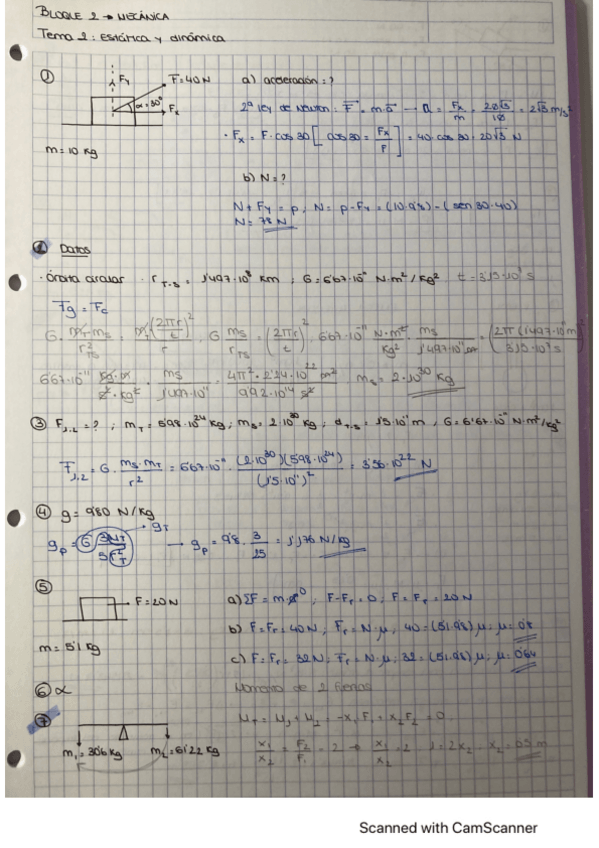 BLOQUE 2 → MECÁNICA
Tema 2: Estática y dinámica
① Fy F=40N α=30° Fx a) aceleración=?
2ª ley de Newton: F = m·a → a = Fx/m = 20√3/10 = 2√3 m/s²
· Fx = F·cos 30 [cos 30 = Fx/F] = 40·cos 30 = 20√3 N
m=10 kg
b) N=?
N + Fy = p; N = p-Fy = (10·9'8) - (sen 30·40)
N = 78 N
② Datos
· Órbita circular · r T-S = 1'497·10⁸ km ; G = 6'67·10⁻¹¹ N·m²/kg² t = 3'15·10⁷ s
Fg = Fc
G · mT·mS/r²TS = mT(2πr/t)²/r G mS/rTS = (2πr/t)² 6'67·10⁻¹¹ N·m²/kg² · mS/1'497·10¹¹ m = (2π(1'497·10¹¹m)/3'15·10⁷ s)²
mS = 2·10³⁰ kg
③ F1,2 = ? ; mT = 5'98·10²⁴ kg ; mS = 2·10³⁰ kg ; dT-S = 1'5·10¹¹ m , G = 6'67·10⁻¹¹ N·m²/kg²
F1,2 = G · mS·mT/r² = 6'67·10⁻¹¹ · (2·10³⁰)(5'98·10²⁴)/(1'5·10¹¹)² = 3'56·10²² N
④ g = 9'80 N/kg
gT
gp = G 3MT/5²r²T → gp = 9'8 · 3/25 = 1'176 N/kg
⑤ F=20N a) ΣF = m·a 0 ; F-Fr = 0 ; F = Fr = 20N
b) F = Fr = 40N ; Fr = N·μ , 40 = (51·9'8) μ ; μ = 0'8
m = 5'1 kg
c) F = Fr = 32N ; Fr = N·μ ; 32 = (51·9'8) μ ; μ = 0'64
⑥ α Momento de 2 fuerzas
⑦ MT = M1 + M2 = -x1F1 + x2F2 = 0
m1=306kg m2=6'122 kg x1/x2 = F2/F1 = 2 → x1/x2 = 2
F
Scanned with CamScanner